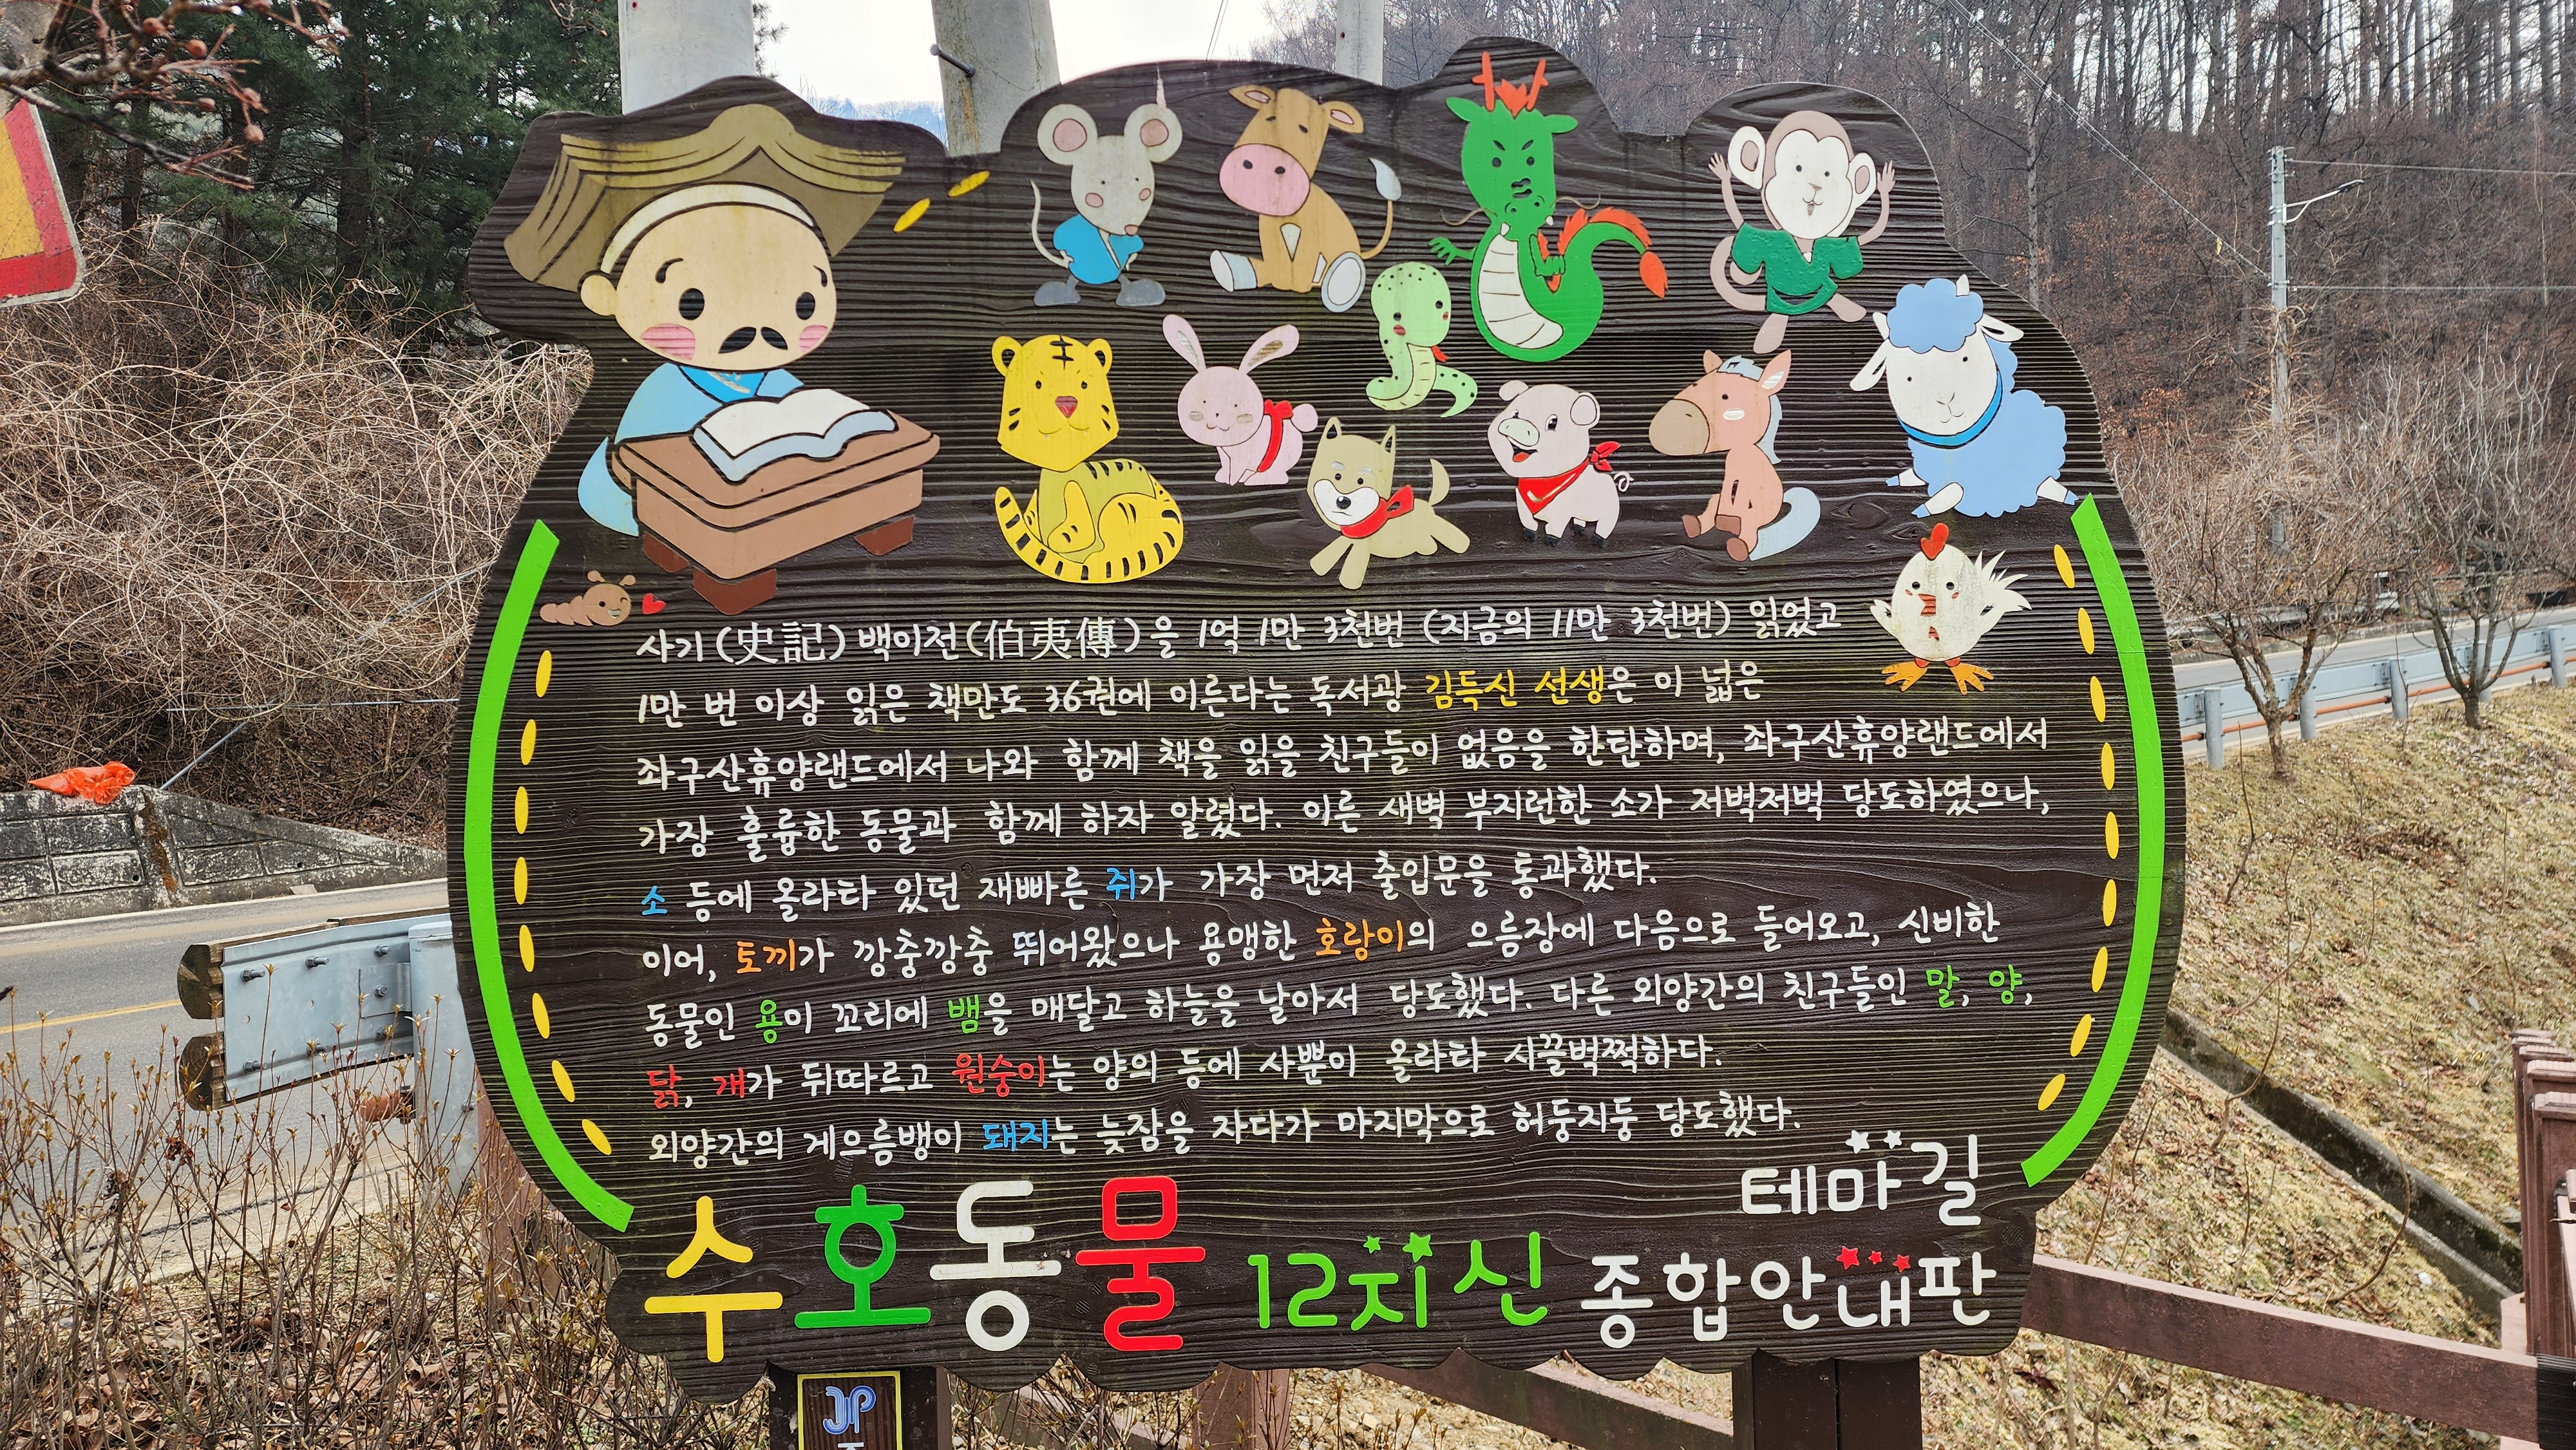 사기(史記) 백이전(伯夷傳)을 1억 1만 3천번 (지금의 11만 3천번) 읽었고
1만 번 이상 읽은 책만도 36권에 이른다는 독서광 김득신 선생은 이 넓은
좌구산휴양랜드에서 나와 함께 책을 읽을 친구들이 없음을 한탄하며, 좌구산휴양랜드에서
가장 훌륭한 동물과 함께 하자 알렸다. 이른 새벽 부지런한 소가 저벅저벅 당도하였으나,
소 등에 올라타 있던 재빠른 쥐가 가장 먼저 출입문을 통과했다.
이어, 토끼가 깡충깡충 뛰어왔으나 용맹한 호랑이의 으름장에 다음으로 들어오고, 신비한
동물인 용이 꼬리에 뱀을 매달고 하늘을 날아서 당도했다. 다른 외양간의 친구들인 말, 양,
닭, 개가 뒤따르고 원숭이는 양의 등에 사뿐이 올라타 시끌벅쩍하다.
외양간의 게으름뱅이 돼지는 늦잠을 자다가 마지막으로 허둥지둥 당도했다.
테마길
수호동물 12지신 종합안내판
JP